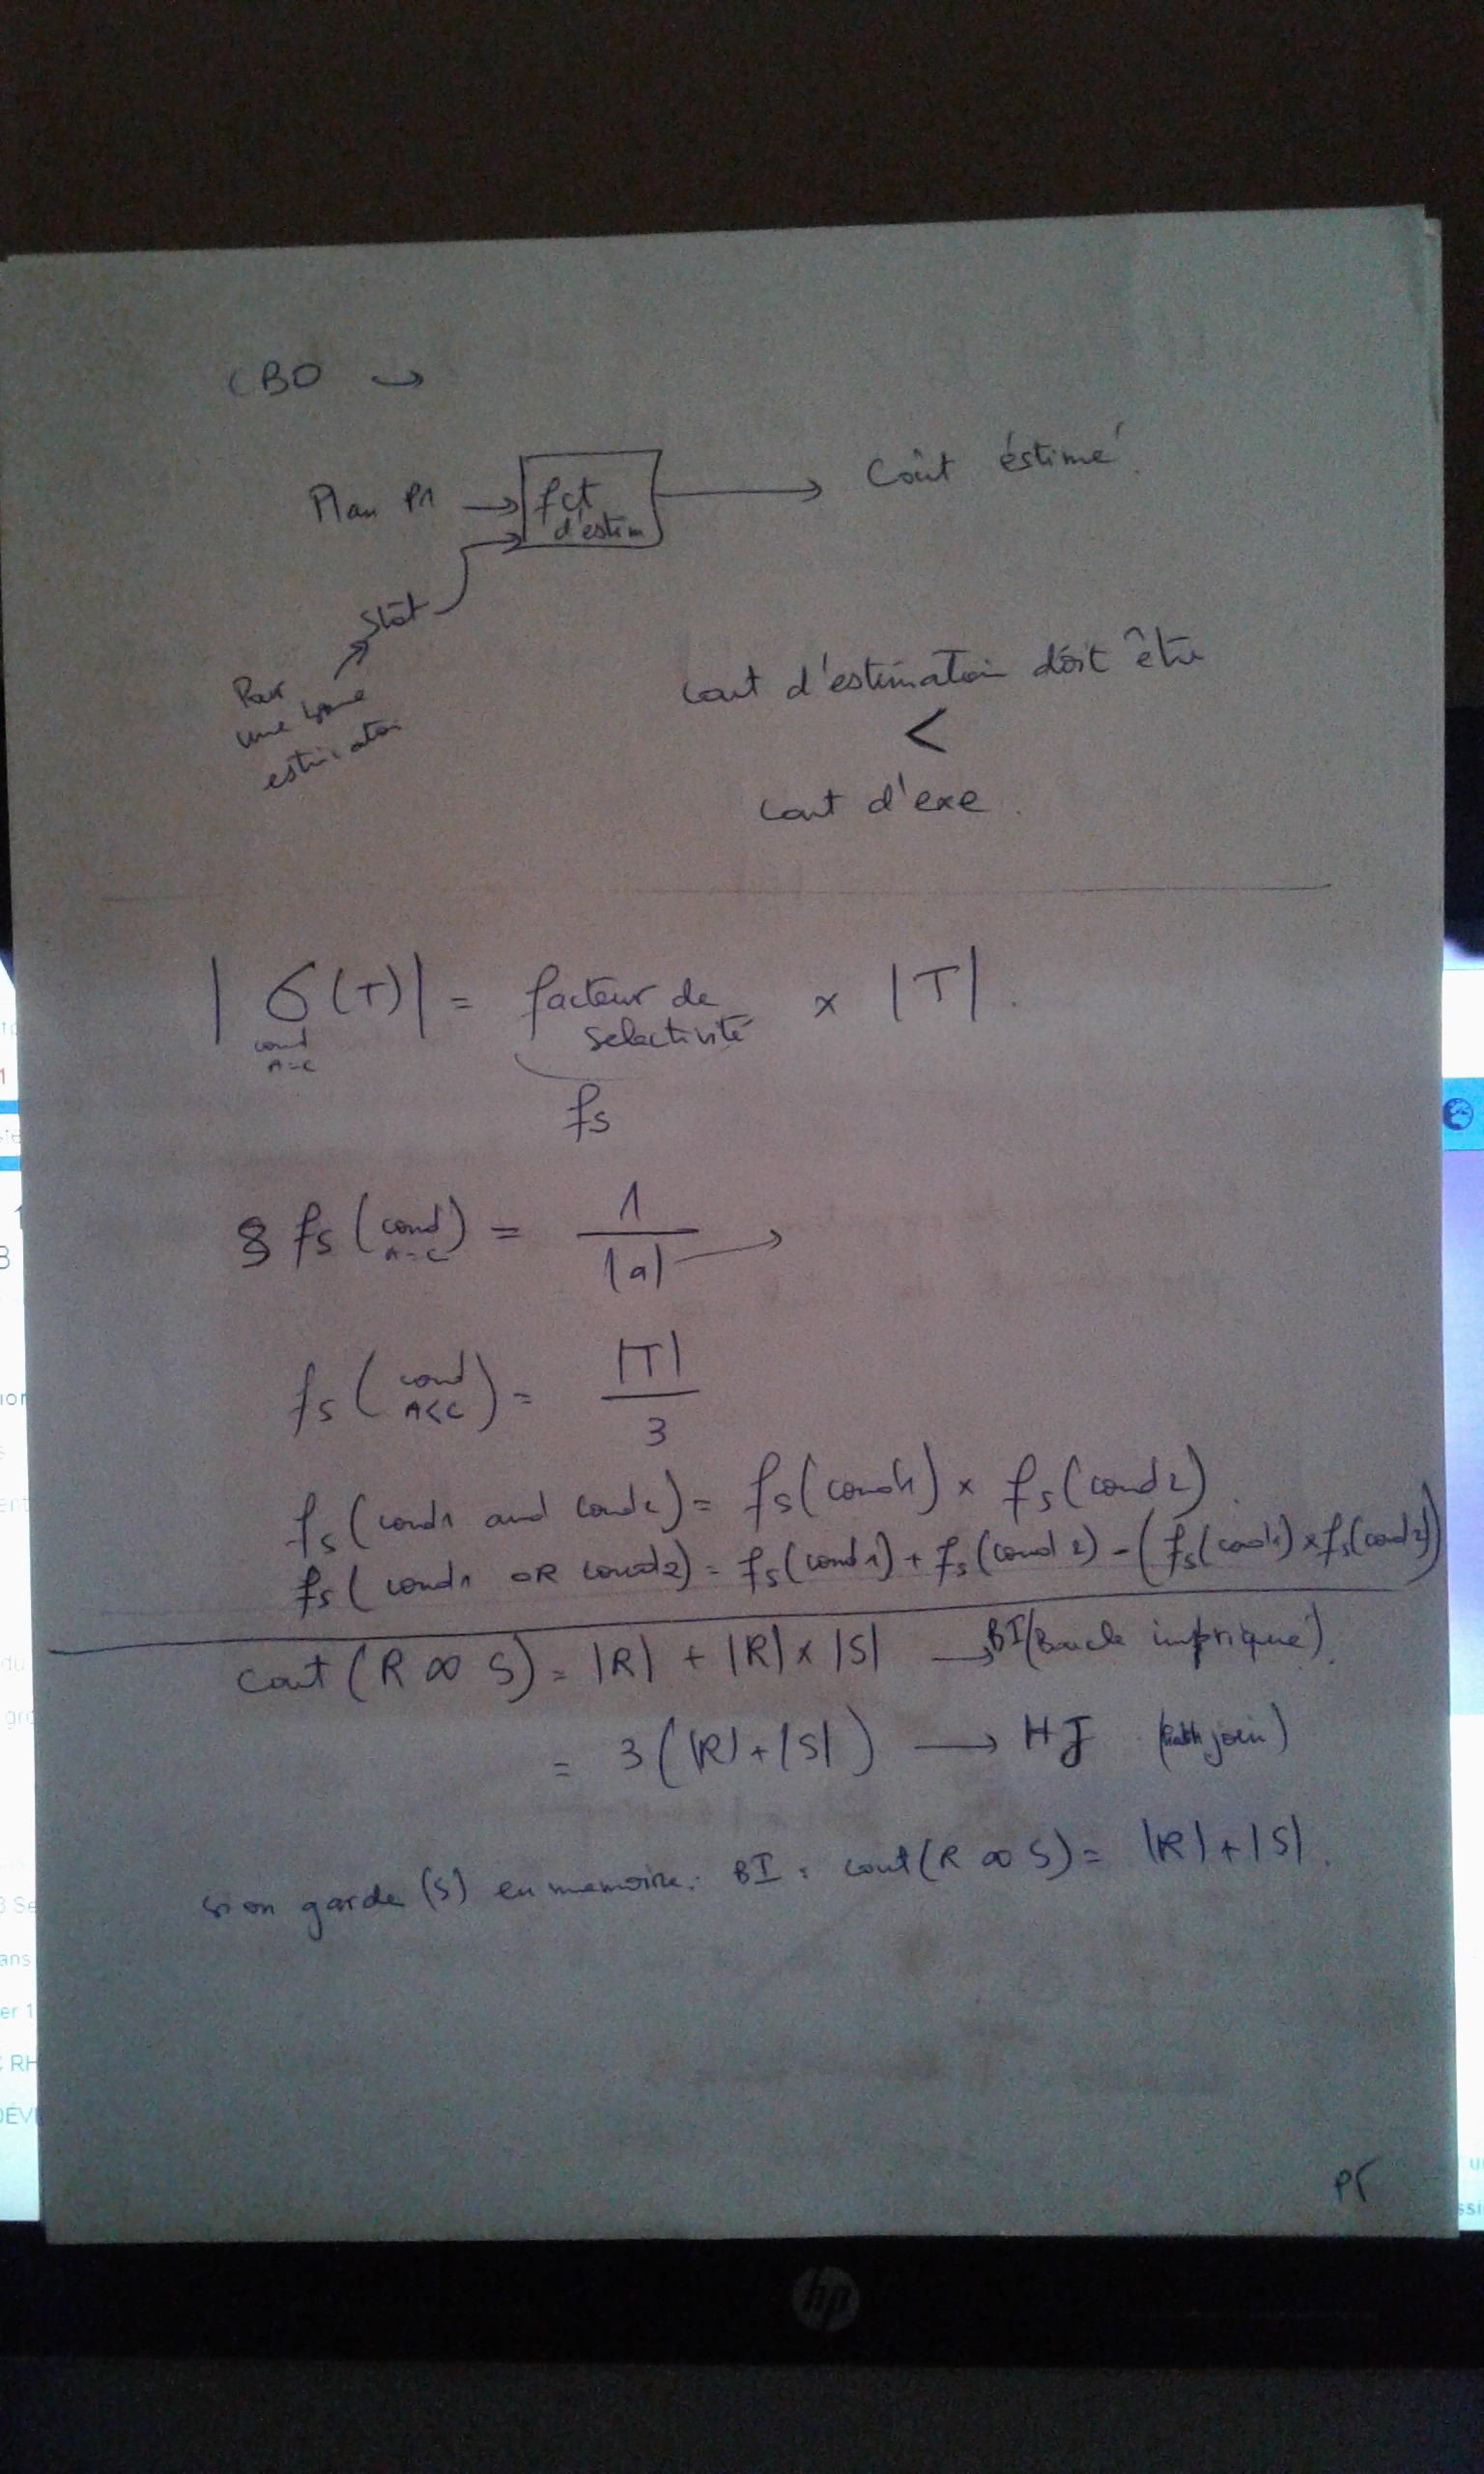 CBO →
Plan P1 → fct d'estim → Coût éstimé.
Stat
Pour
une bonne
estimation
cout d'estimation doit être
<
cout d'exe.
|σ(T)| = facteur de selectivité × |T|.
cond
A=C
fs
fs (cond A=C) = 1 / |a| →
fs (cond A<C) = |T| / 3
fs (cond1 and cond2) = fs (cond1) × fs (cond2).
fs (cond1 OR cond2) = fs (cond1) + fs (cond2) - (fs (cond1) × fs (cond2))
cout (R ∞ S) = |R| + |R| × |S| → BI (Boucle imbriquée).
= 3 (|R| + |S|) → HJ (hash join)
si on garde (S) en memoire. BI : cout (R ∞ S) = |R| + |S|.
hp